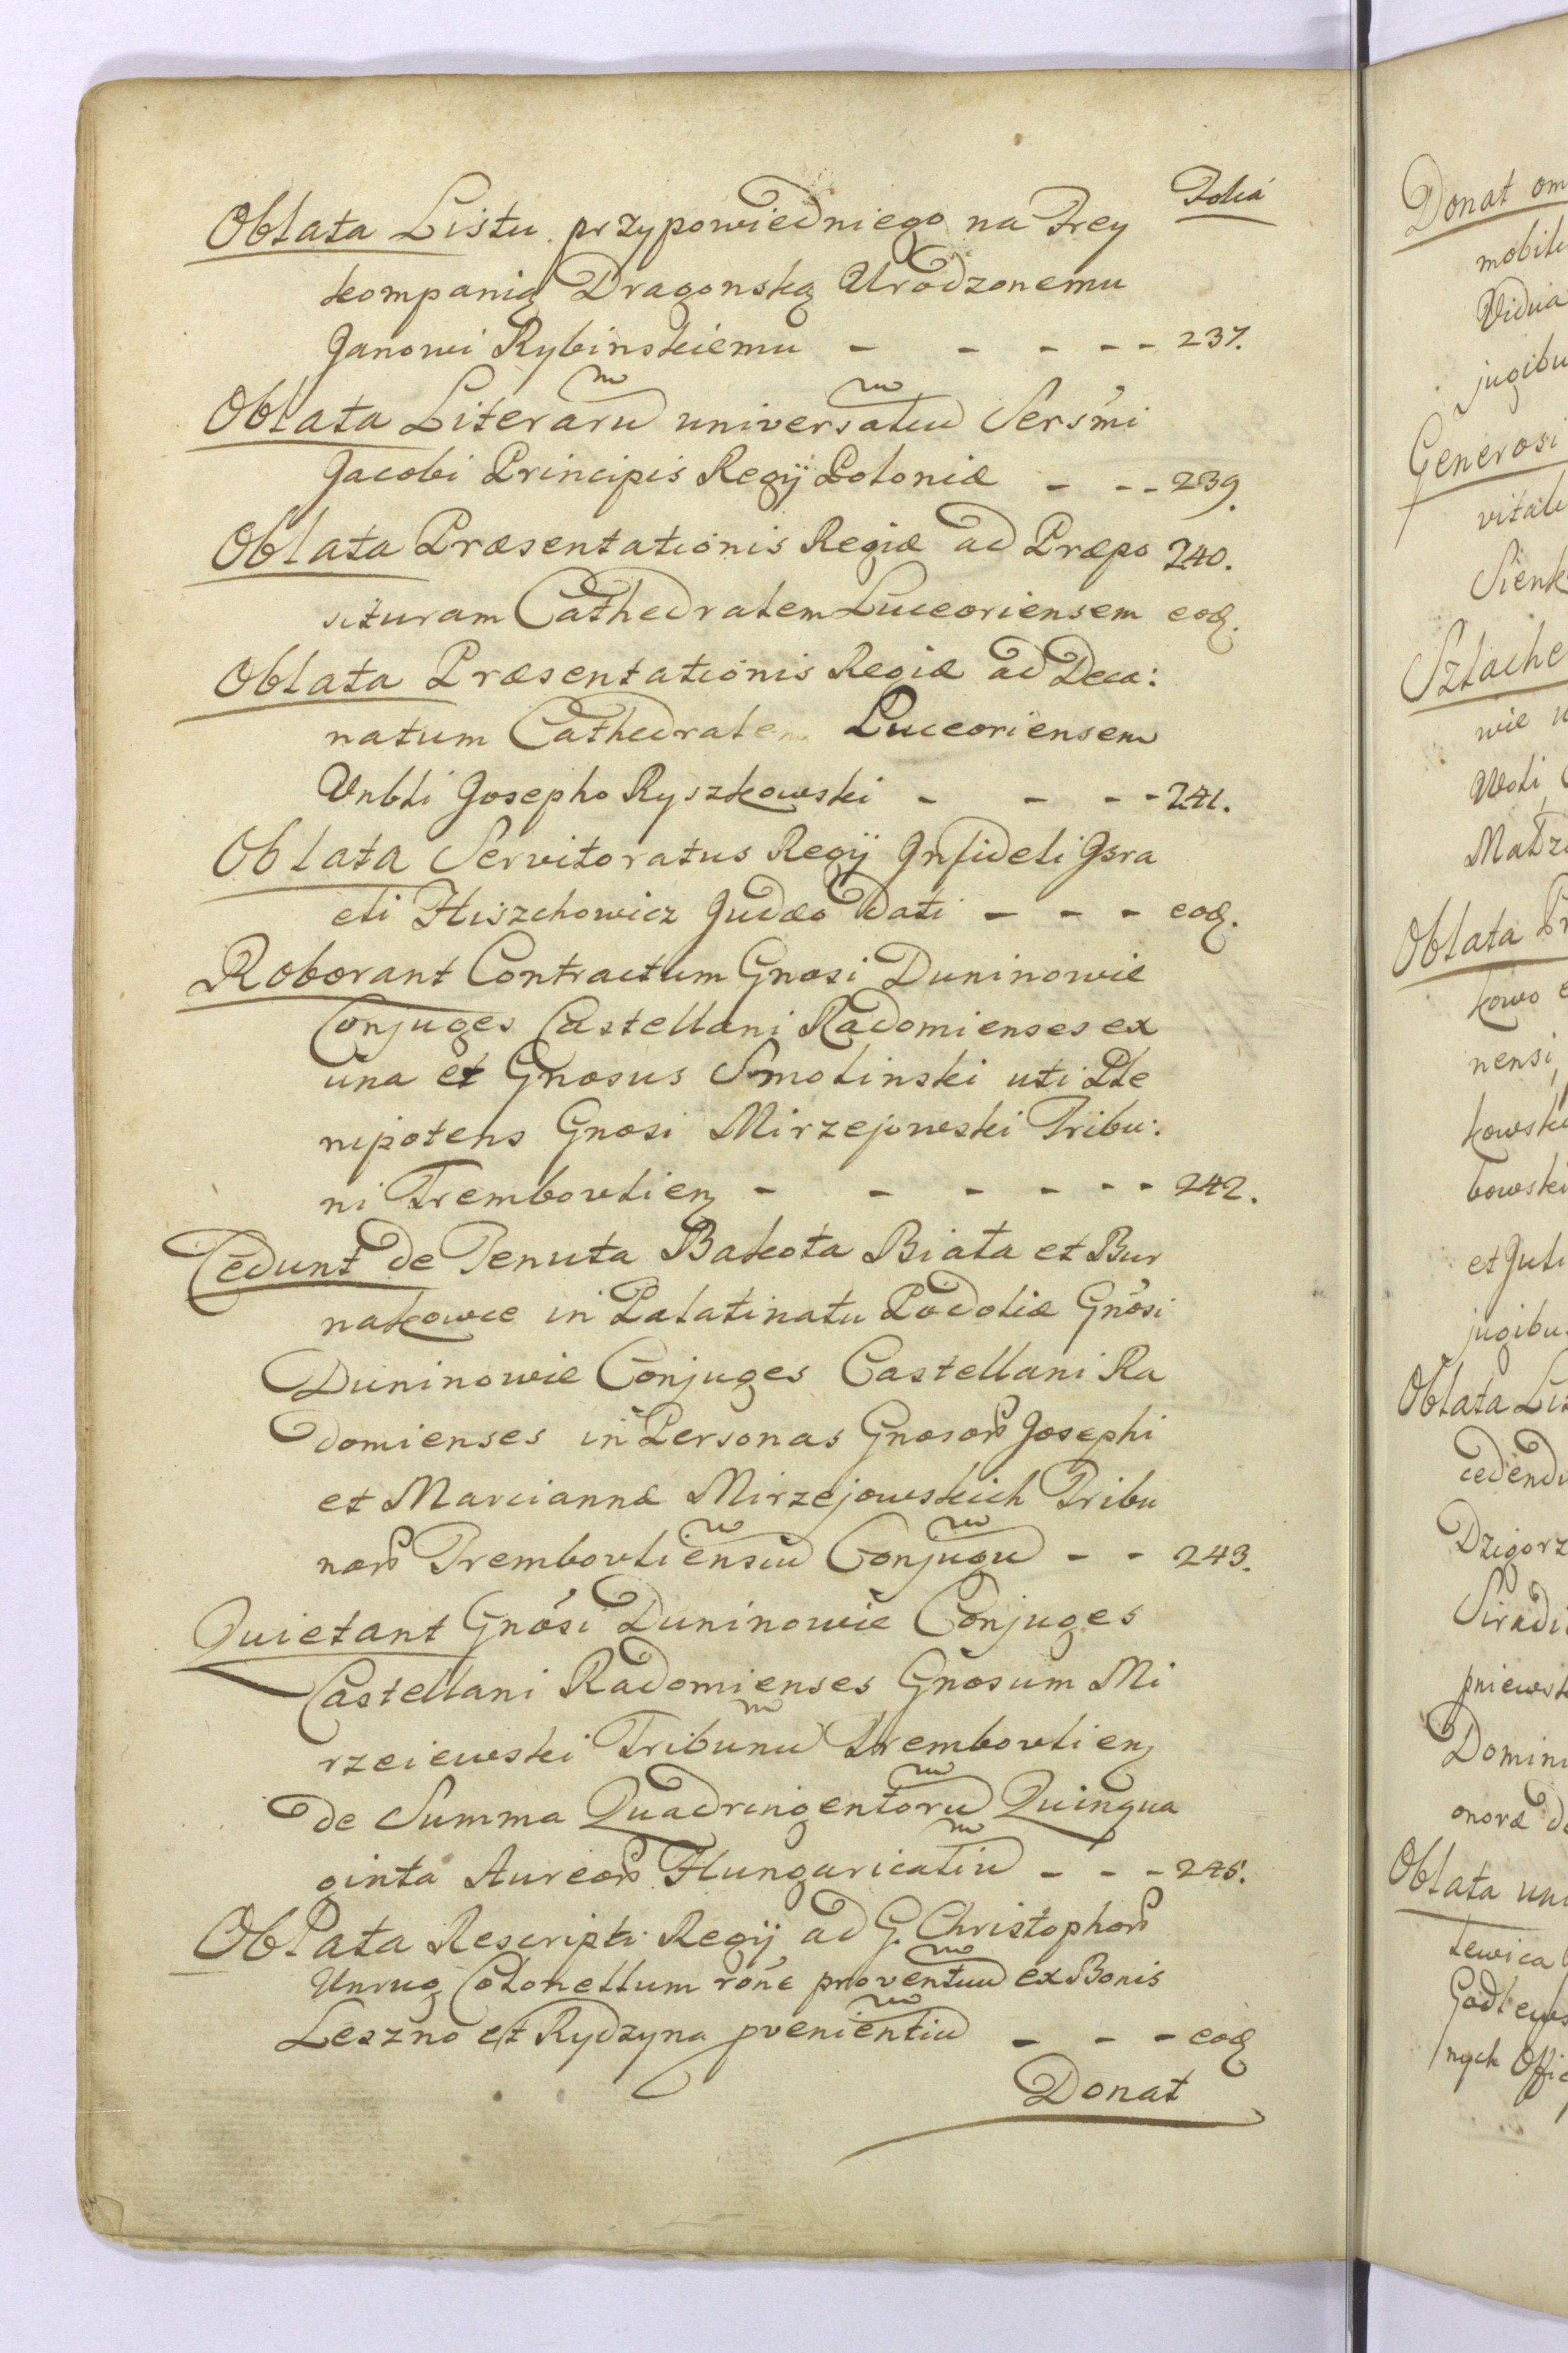 Folia
Oblata Listu przypowiedniego na Frey
kompanią Dragonską Urodzonemu
Janowi Rybinskiemu - - - - - 237.
Oblata Literarū universaliū Sersmi
Jacobi Principis Regÿ Poloniæ - - - 239.
Oblata Præsentationis Regiæ ad Præpo 240.
situram Cathedralem Luceoriensem eoq.
Oblata Præsentationis Regiæ ad Deca:
natum Cathedralem Luceoriensem
Vnbli Josepho Ryszkowski - - - - 241.
Oblata Servitoratus Regÿ Infideli Isra
eli Hiszchowicz Judæo dati - - - eoq.
Roborant Contractum Gnosi Duninowie
Conjuges Castellani Radomienses ex
una et Gnosus Smolinski uti Ple
nipotens Gnosi Mirzejowski Tribu:
ni Trembovlienz - - - - - - 242.
Cedunt de Tenuta Bakota Biała et Bur
nakowce in Palatinatu Podoliæ Gnosi
Duninowie Conjuges Castellani Ra
domienses in Personas Gnosor Josephi
et Marciannæ Mirzejowskich Tribu
nor Trembovliensiū Conjugū - - 243.
Quietant Gnosi Duninowie Conjuges
Castellani Radomienses Gnosum Mi
rzeiewski Tribunū Trembovlienz
de Summa Quadringentorū Quinqua
ginta Aureor Hungaricaliū - - - 245.
Oblata Rescripti Regÿ ad G. Christophor
Unrug Colonellum rone proventuū ex Bonis
Leszno et Rydzyna pvenientiū - - - eoq
Donat
Donat om
mobil
Vidua
jugibu
Generosi
vitali
Sienk
Szlache
wie
Woli
Oblata Pr
kowo
nensi
kowski
bowski
et Juli
jugibu
Oblata Lis
cedend
Dzigorz
Siradi
pniewsk
Domini
Oblata uni
tewica
nych Offic